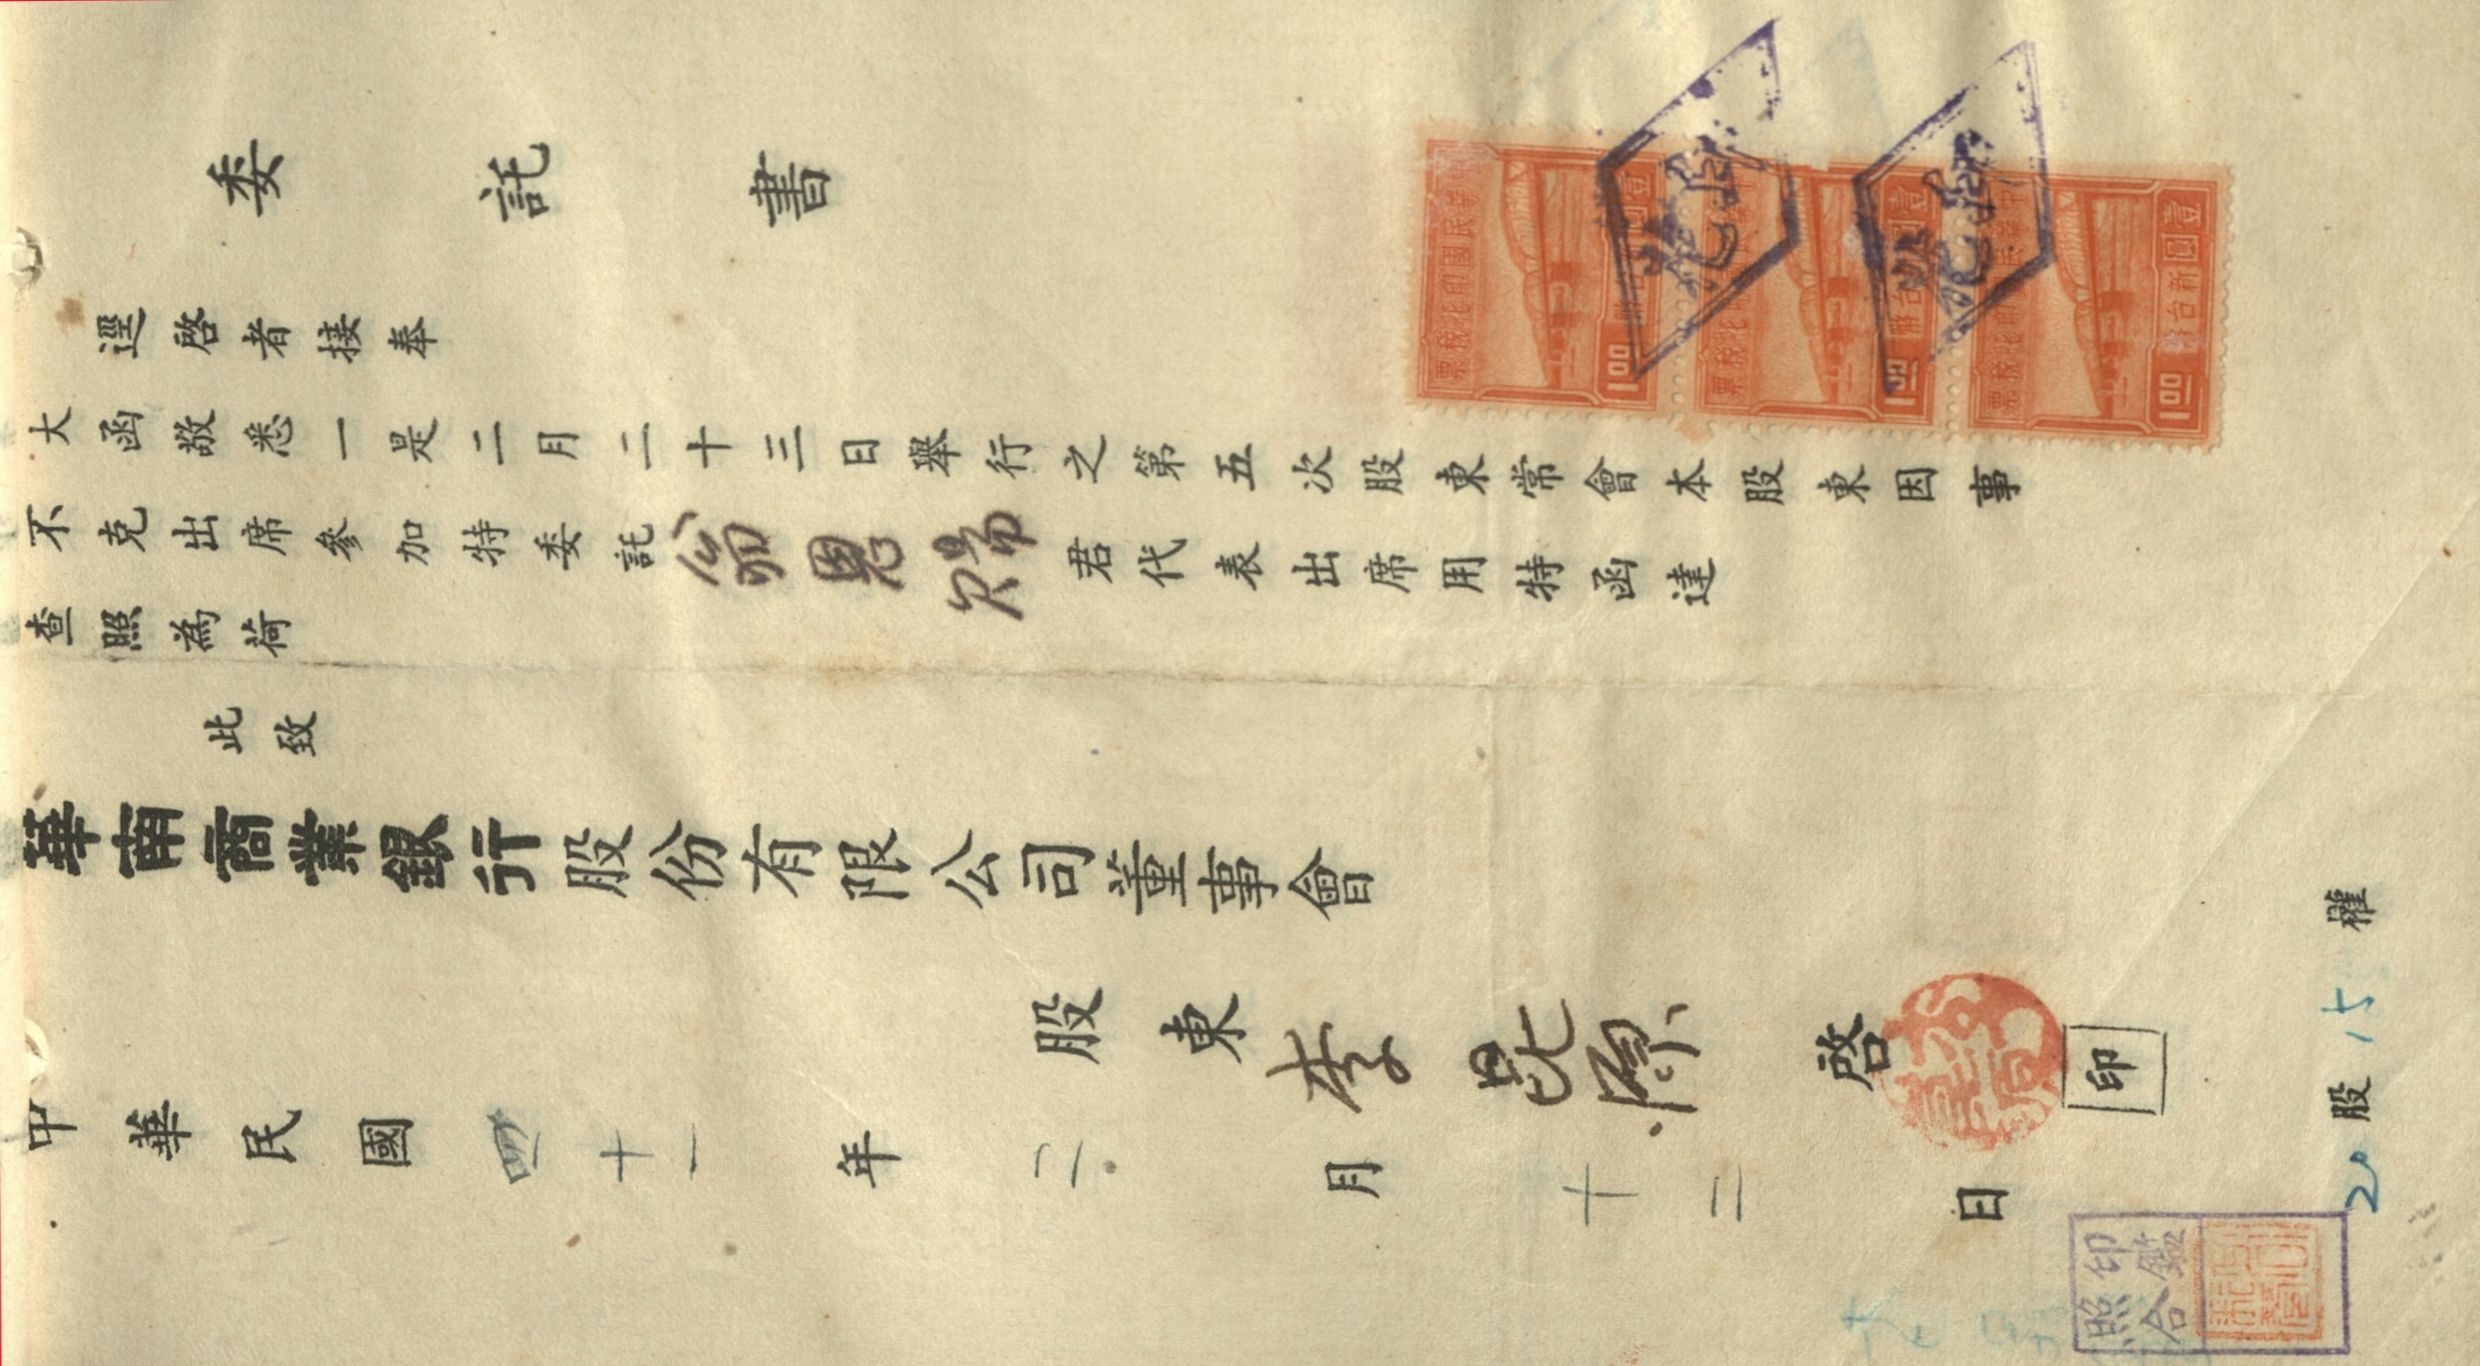 委託書
逕啓者接奉
大函敬悉一是二月二十三日舉行之第五次股東常會本股東因事
不克出席參加特委託翁恩賜君代表出席用特函達
查照為荷
此致
華南商業銀行股份有限公司董事會
股東李昆源啓
印
中華民國四十一年二月十二日
20股15權
印鑑
照合
中華民國印花稅票
壹圓新台幣
1.00
中華民國印花稅票
壹圓新台幣
1.00
中華民國印花稅票
壹圓新台幣
1.00